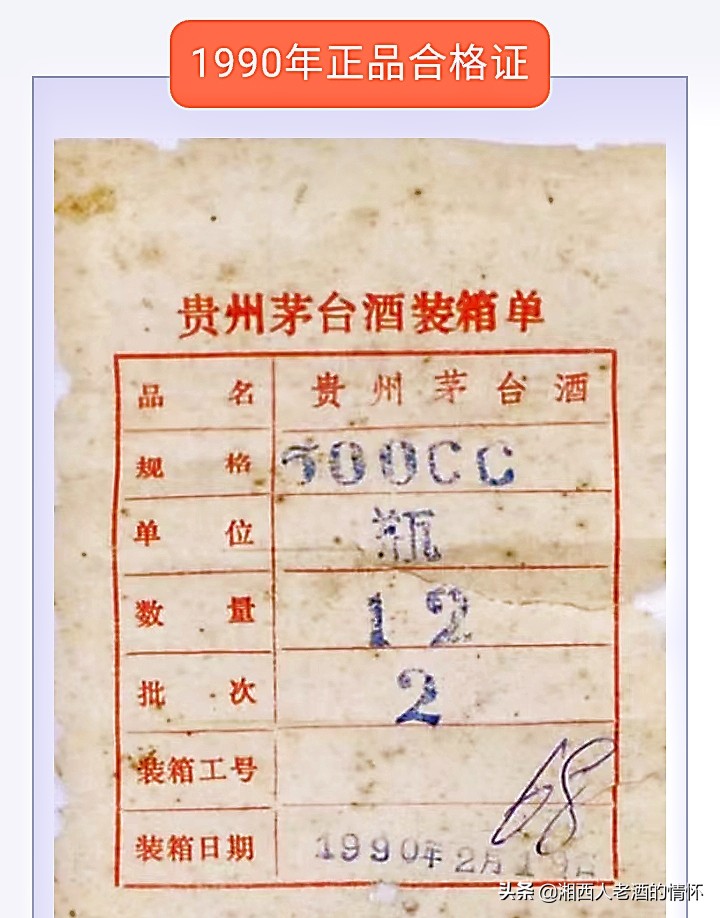 1990年正品合格证
贵州茅台酒装箱单
品 名 贵州茅台酒
规 格 500CC
单 位 瓶
数 量 12
批 次 2
装箱工号 68
装箱日期 1990年2月19日
头条 @湘西人老酒的情怀